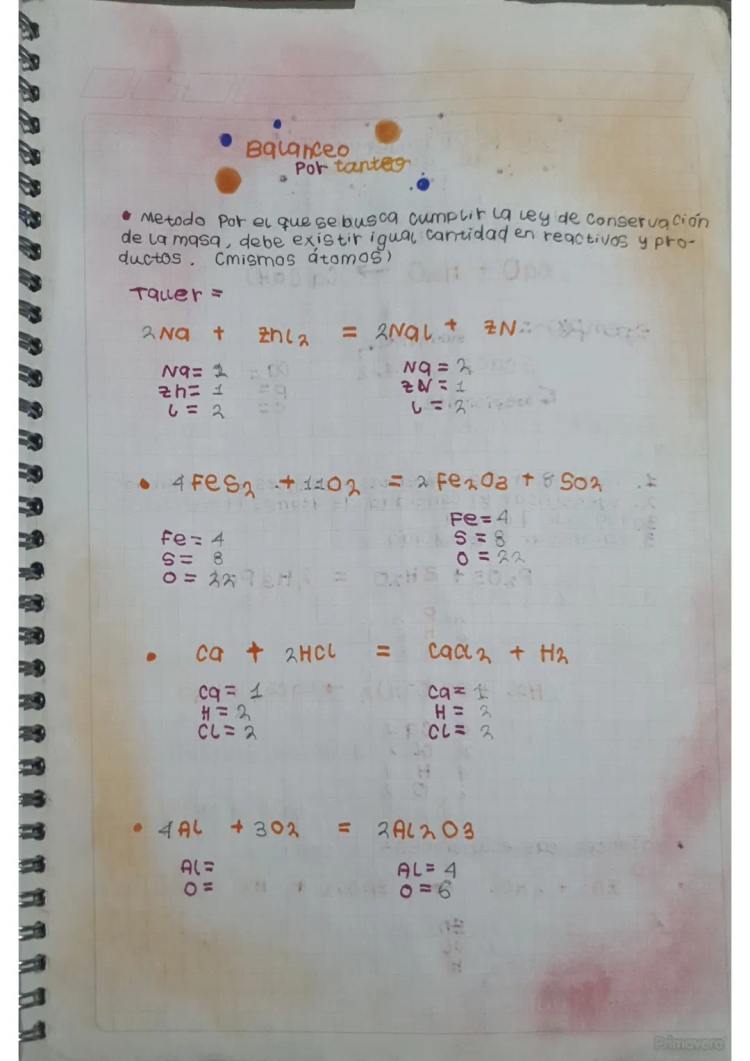 Balanceo
Por tanteo
• Metodo Por el que se busca cumplir la Ley de conservación
de la masa, debe existir igual cantidad en reactivos y pro-
ductos. (mismos átomos)
Taller =
2Na + ZnI2 = 2NaI + ZN
Na= 2 Na = 2
Zn= 1 ZN = 1
I = 2 I = 2
• 4FeS2 + 11O2 = 2Fe2O3 + 8SO2
Fe= 4 Fe= 4
S= 8 S= 8
O= 22 O= 22
• Ca + 2HCl = CaCl2 + H2
Ca= 1 Ca= 1
H= 2 H= 2
CL= 2 CL= 2
• 4AL + 3O2 = 2AL2O3
AL= AL= 4
O= O=6
Primavera